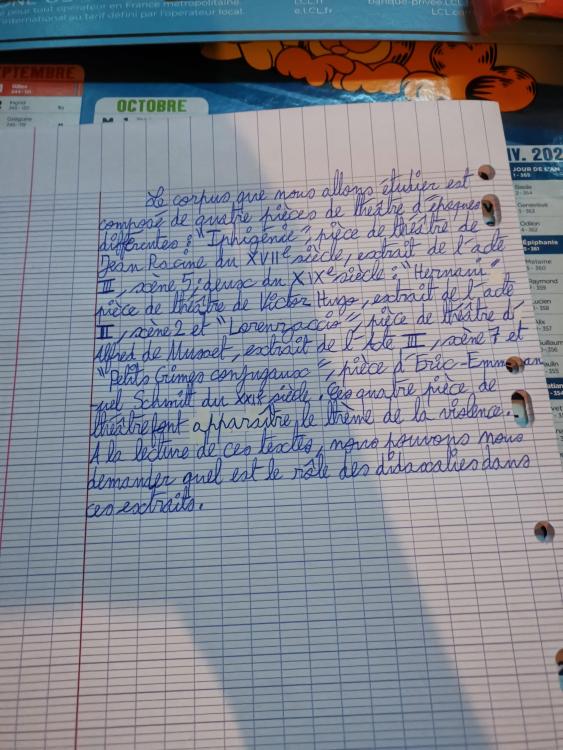 NE
pour tout opérateur en France métropolitaine.
international au tarif défini par l'opérateur local.
e.LCL.fr
banque-privee.LCL
LCL.com
SEPTEMBRE
Gilles
Ingrid
Grégoire
OCTOBRE
Le corpus que nous allons étudier est
composé de quatre pièces de théâtre d'époques
différentes : "Iphigénie", pièce de théâtre de
Jean Racine du XVIIe siècle, extrait de l'acte
III, scène 5 ; deux du XIXe siècle : "Hernani"
pièce de théâtre de Victor Hugo, extrait de l'acte
II, scène 2 et "Lorenzaccio", pièce de théâtre d'
Alfred de Musset, extrait de l'Acte III, scène 7 et
"Petits Crimes conjugaux", pièce d'Eric-Emman
-uel Schmitt du XXIe siècle. Ces quatre pièce de
théâtre font apparaître le thème de la violence.
A la lecture de ces textes, nous pouvons nous
demander quel est le rôle des didascalies dans
ces extraits.
JOUR DE L'AN
Basile
Geneviève
Odilon
Épiphanie
Melaine
Raymond
Lucien
Alix